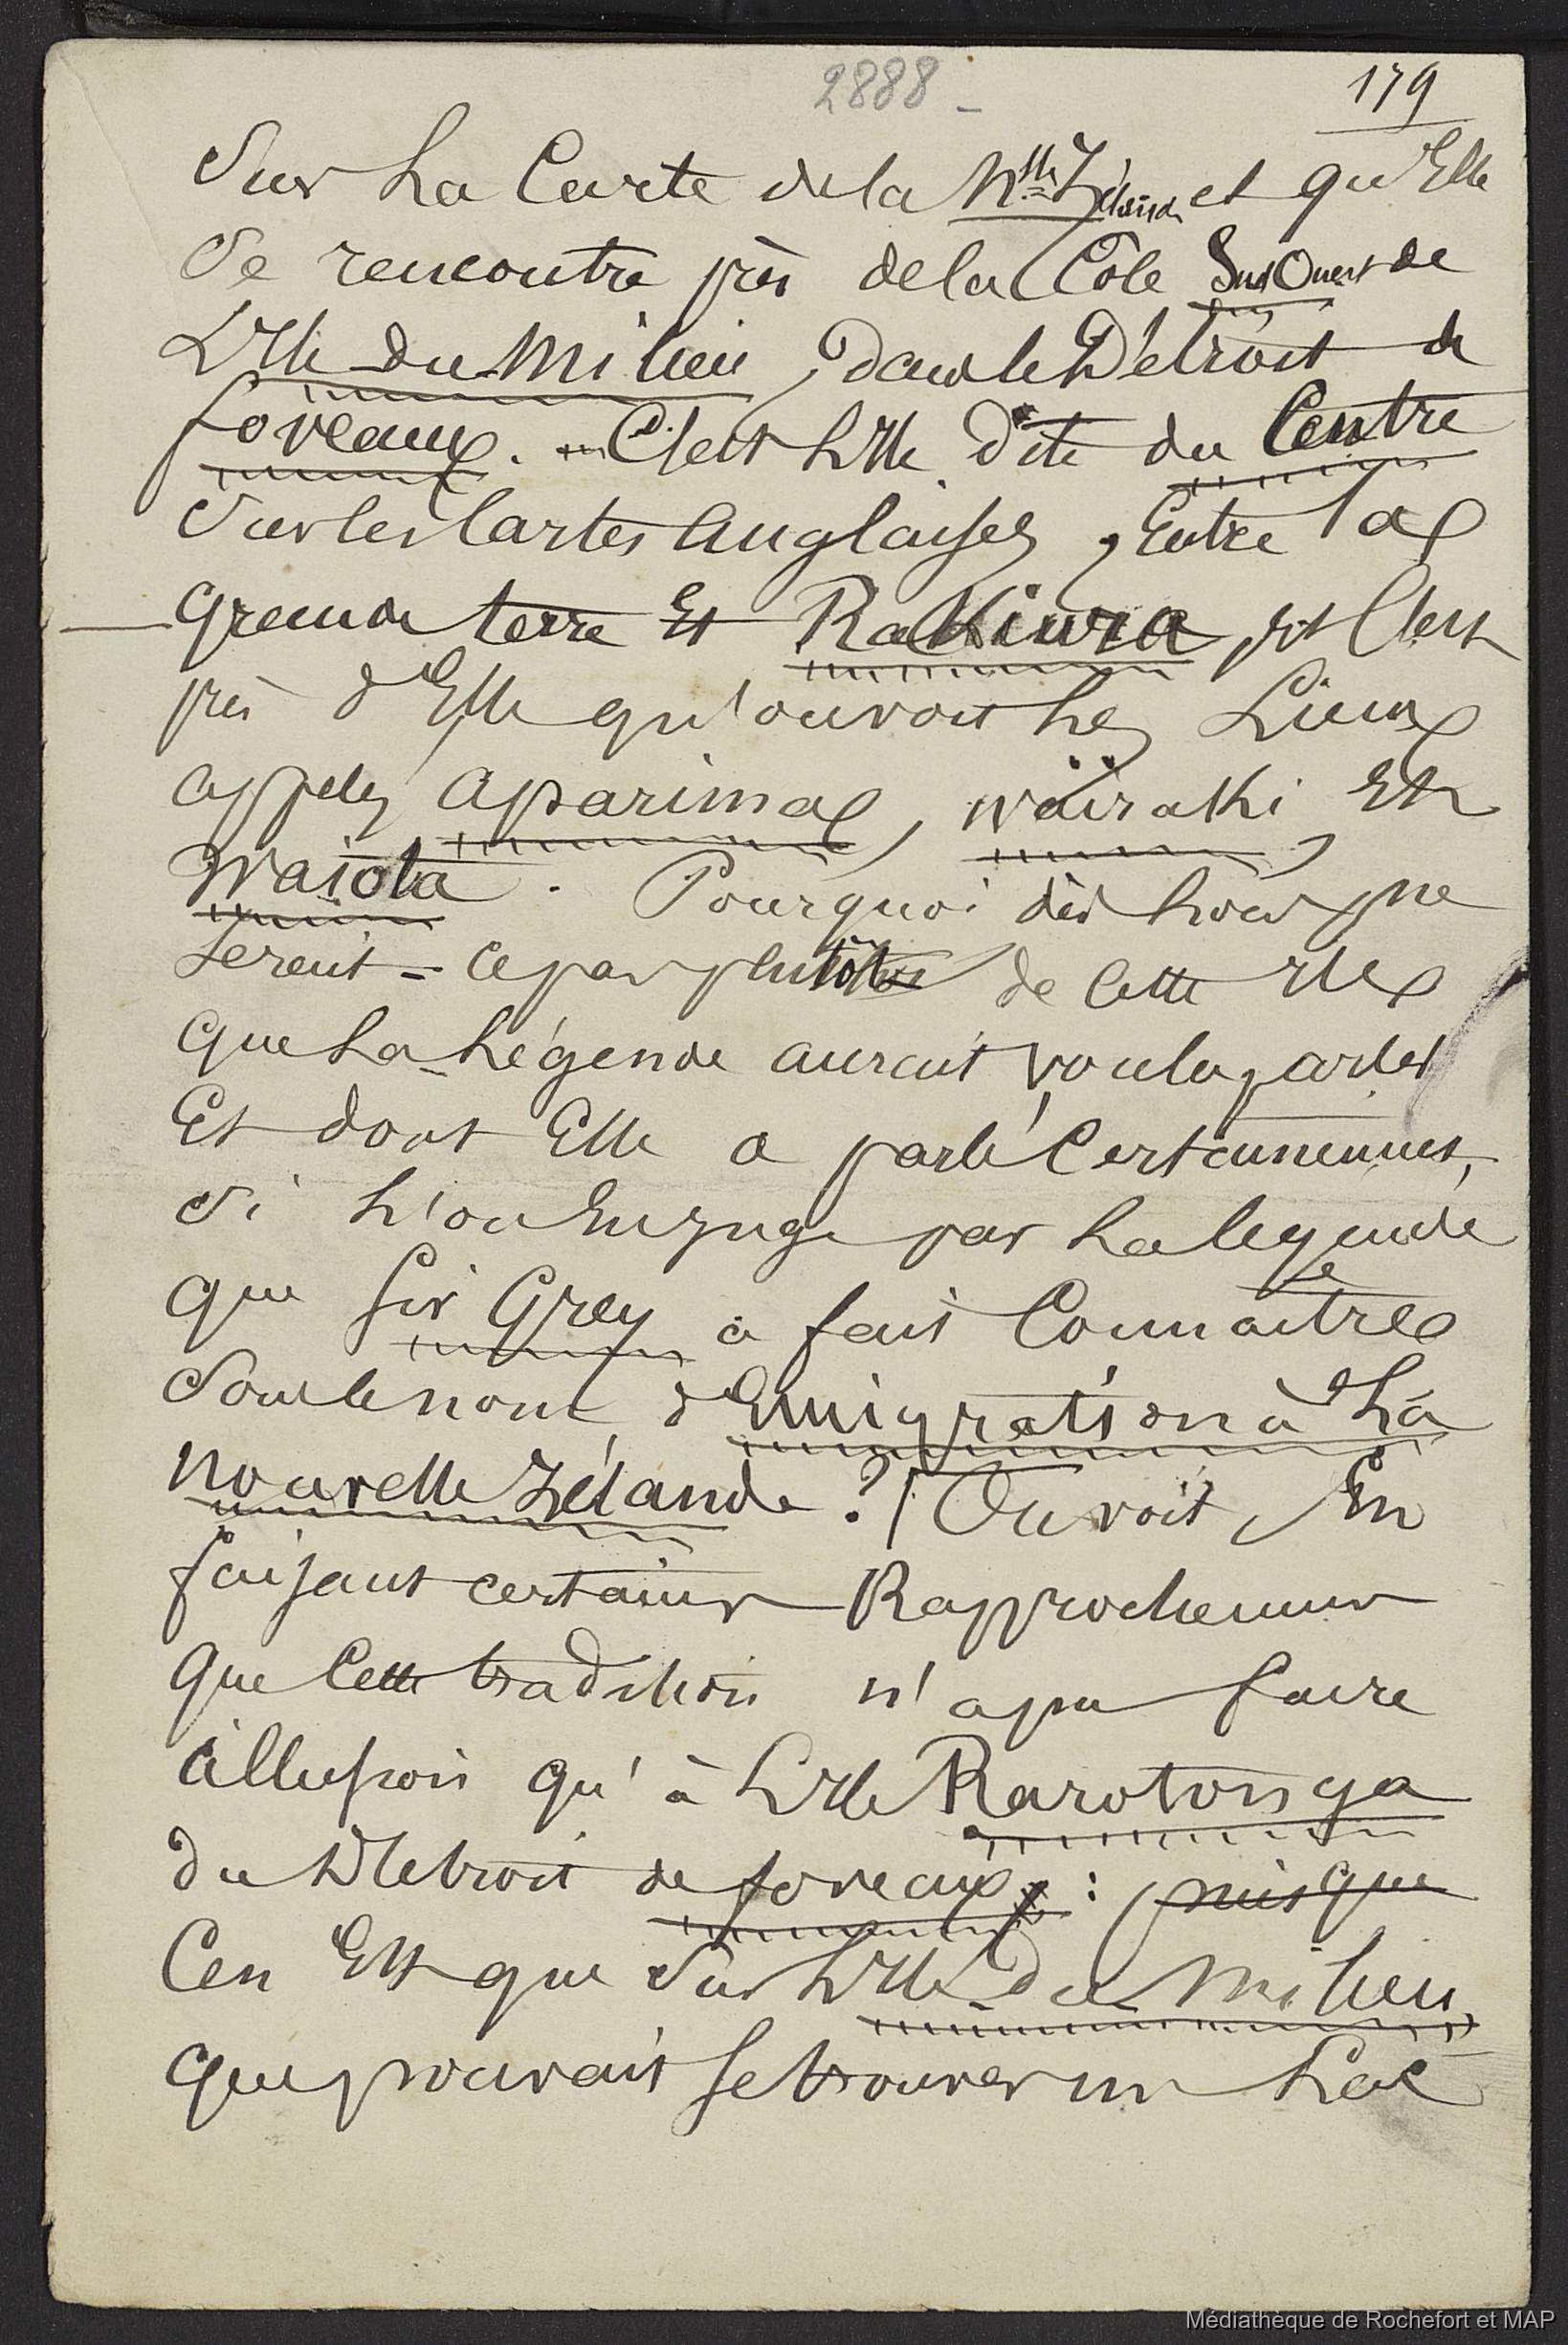 2888 -
179
Sur La Carte de la Nlle Zélande et qu'Elle
Se rencontre près de la Côte Sud Ouest de
L'Ile du Milieu, dans le Détroit de
foveaux. - C'est L'Ile dite du Centre
Sur les Cartes Anglaises, Entre la
grande terre Et Rakiura, et C'est
près d'Elle qu'on voit les Lieux
appelés Aparima, Wairaki Et
Waiota. Pourquoi dès lors, ne
serait-ce pas plutôt de Cette Ile
que La Légende aurait voulu parler
Et dont Elle a parlé Certainement,
si l'on En juge par La legende
que Sir Grey a fait Connaitre
Sous le nom d'Emigration à La
Nouvelle Zélande? On voit, En
faisant certains Rapprochemens
que Cette tradition n'a pu faire
allusion qu'à L'Ile Rarotonga
du Détroit de foveaux : puisque
Ce n'Est que Sur L'Ile du Milieu,
que pouvait se trouver un Lac
Médiathèque de Rochefort et MAP